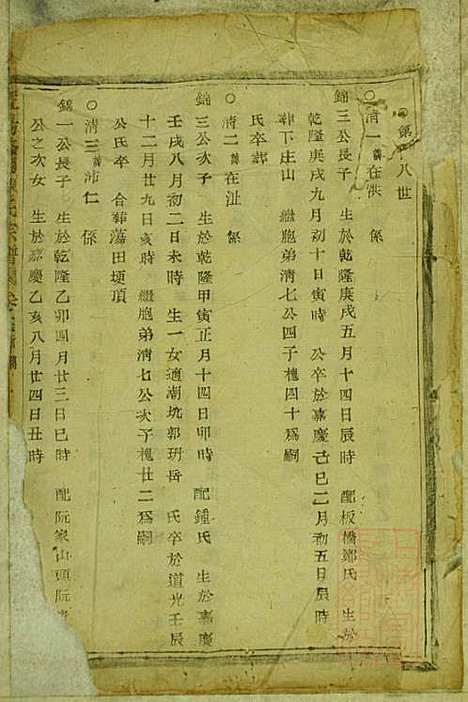 ○第 八世
○清一 在洪 係
錦三公長子 生於乾隆庚戌五月十四日辰時 配板橋鄭氏 生於
乾隆庚戌九月初十日寅時 公卒於嘉慶己巳二月初五日辰時
葬下庄山 繼胞弟清七公四子槐四十爲嗣
○清二 在沚 係
錦三公次子 生於乾隆甲寅正月十四日卯時 配鍾氏 生於嘉慶
壬戌八月初二日未時 生一女適潮坑郭玥岳 氏卒於道光壬辰
十二月廿九日亥時 繼胞弟清七公次子槐廿二爲嗣
公氏卒 合葬蕩田埂頂
○清三 沛仁 係
錦一公長子 生於乾隆乙卯四月廿三日巳時 配阮家山頭阮
公之次女 生於嘉慶乙亥八月廿四日丑時
宗譜